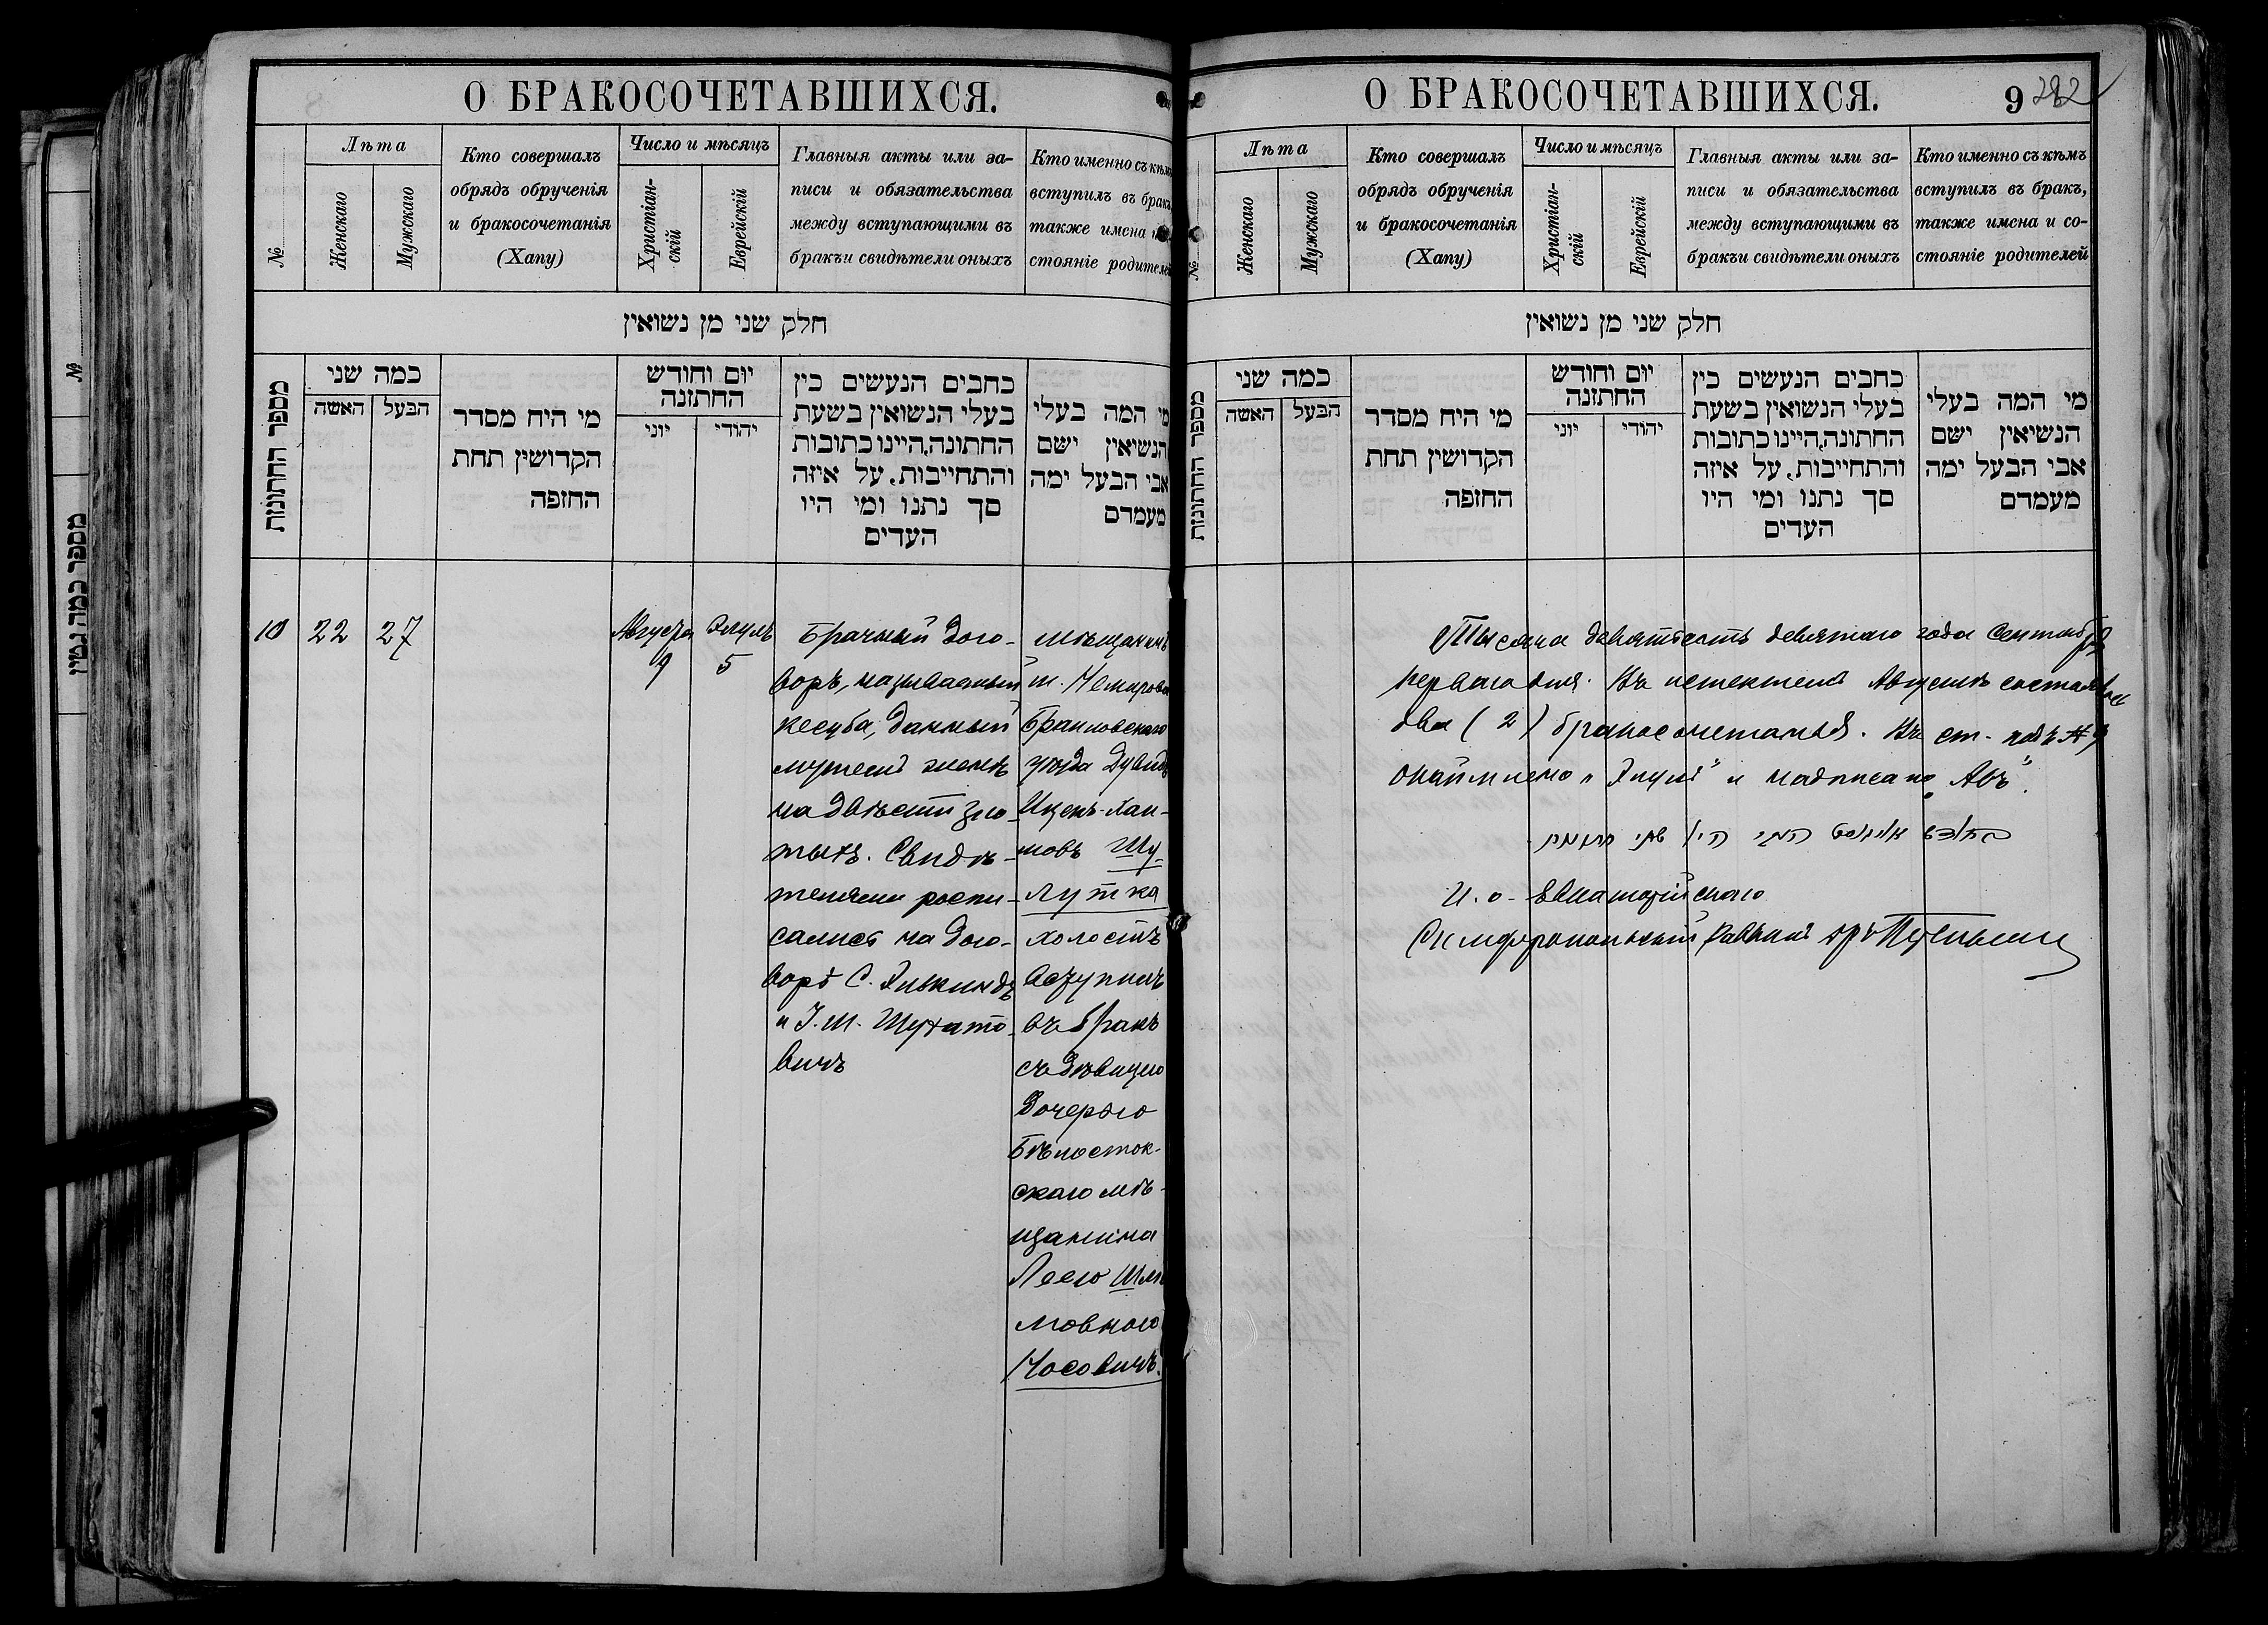 О БРАКОСОЧЕТАВШИХСЯ.
№
Лѣта
Женскаго
Мужскаго
Кто совершалъ
обрядъ обрученія
и бракосочетанія
(Хапу)
Число и мѣсяцъ
Христіан-
скій
Еврейскій
Главныя акты или за-
писи и обязательства
между вступающими въ
бракъ и свидѣтели оныхъ
Кто именно съ кѣмъ
вступилъ въ бракъ,
также имена
стояніе родителей
חלק שני מן נשואין
מספר החתונות
כמה שני
האשה
הבעל
מי היח מסדר
הקדושין תחת
החופה
יום וחודש
החתונה
יוני
יהודי
כתבים הנעשים בין
בעלי הנשואין בשעת
החתונה, היינו כתובות
והתחייבות, על איזה
סך נתנו ומי היו
העדים
מי המה בעלי
הנשיאין ישם
אבי הבעל ימה
מעמדם
10
22
27
Августа
9
Элулъ
5
Брачный дого-
воръ, называемый
кесуба, данный
мужемъ женѣ
на двѣсти зло-
тыхъ. Свидѣ-
телями роспи-
сались на дого-
ворѣ С. Элькиндъ
и I. Ш. Шухато-
вичъ
мѣщанинъ
м. Немирова
Браиловскаго
уѣзда Дувидъ
Ицекъ-Хаи-
мовъ Шу-
лутка
холостъ
вступилъ
въ бракъ
съ дѣвицею
дочерью
Бѣлосток-
скаго мѣ-
щанина
Леею Шлі
мовною
Носовичъ.
О БРАКОСОЧЕТАВШИХСЯ.
9
282
№
Лѣта
Женскаго
Мужскаго
Кто совершалъ
обрядъ обрученія
и бракосочетанія
(Хапу)
Число и мѣсяцъ
Христіан-
скій
Еврейскій
Главныя акты или за-
писи и обязательства
между вступающими въ
бракъ и свидѣтели оныхъ
Кто именно съ кѣмъ
вступилъ въ бракъ,
также имена и со-
стояніе родителей
חלק שני מן נשואין
מספר החתונות
כמה שני
האשה
הבעל
מי היח מסדר
הקדושין תחת
החופה
יום וחודש
החתונה
יוני
יהודי
כתבים הנעשים בין
בעלי הנשואין בשעת
החתונה, היינו כתובות
והתחייבות, על איזה
סך נתנו ומי היו
העדים
מי המה בעלי
הנשיאין ישם
אבי הבעל ימה
מעמדם
Тысяча девятьсотъ девятаго года Сентября
перваго дня. Въ истекшемъ Августѣ состоялось
два (2) бракосочетанія. Въ ст. подъ № 9
"Элулъ" и надписано "Авъ".
בחודש אויגוסט היו שתי חתונות
И. о. Евпаторійскаго
Симферопольскій Раввинъ